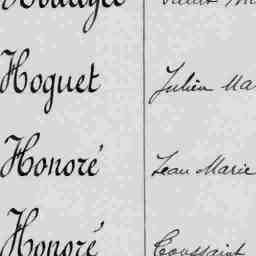 Hoguet Julien Ma
Honoré Jean Marie
Honoré Toussaint